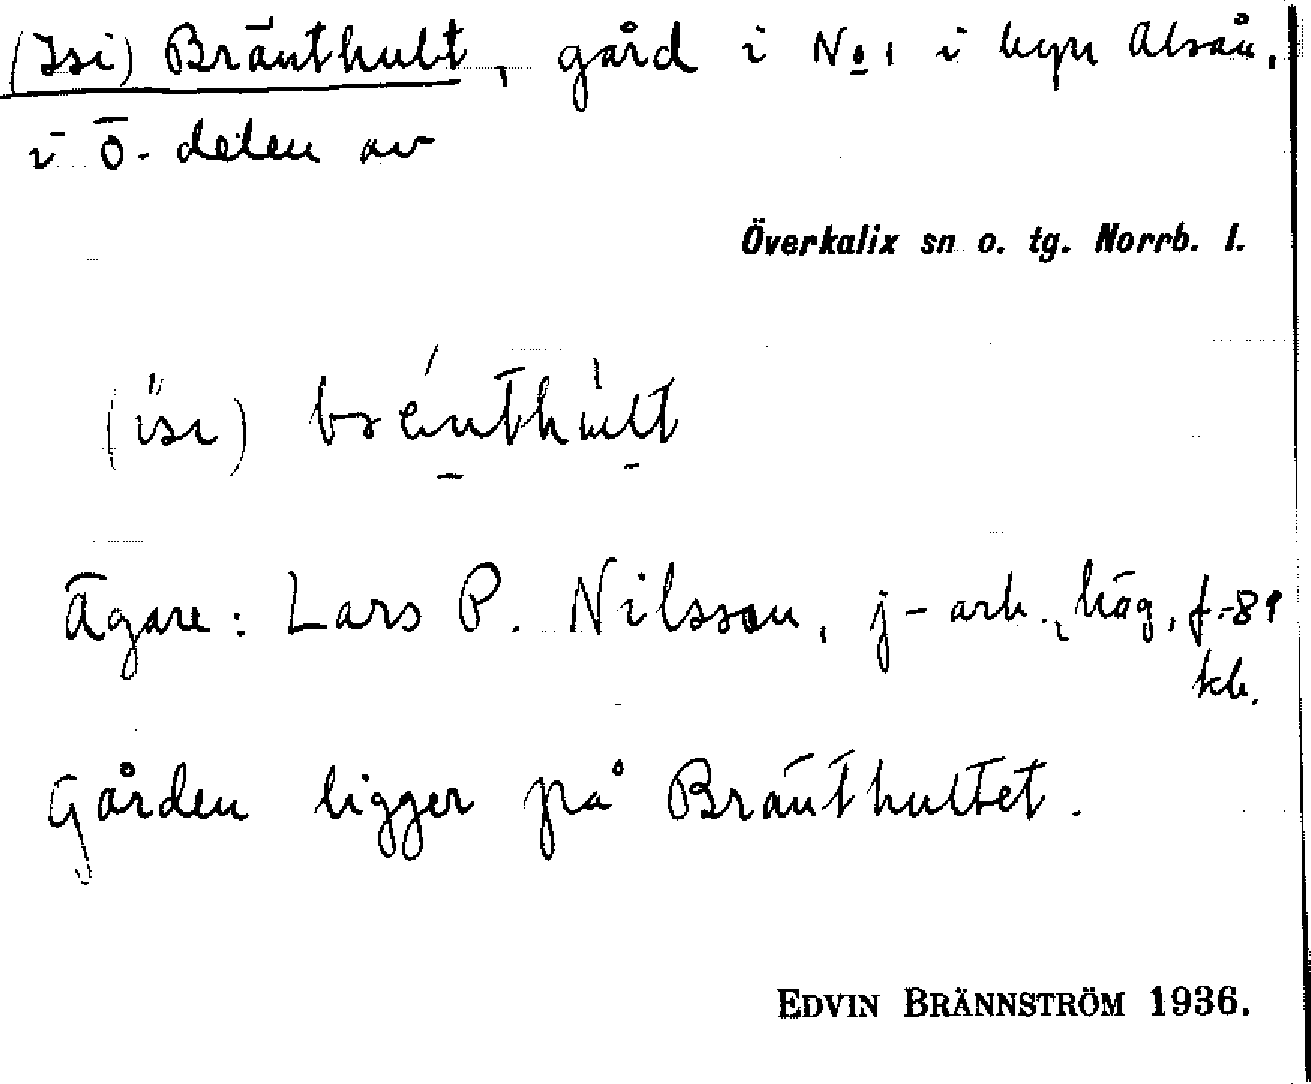 (Isi) Bränthult, gård i No 1 i byn Alsån,
i ö. delen av
Överkalix sn o. tg. Norrb. l.
Ägare: Lars P. Nilsson, j-arb., häg, f.-89
kb.
Gården ligger på Bränthultet.
EDVIN BRÄNNSTRÖM 1936.